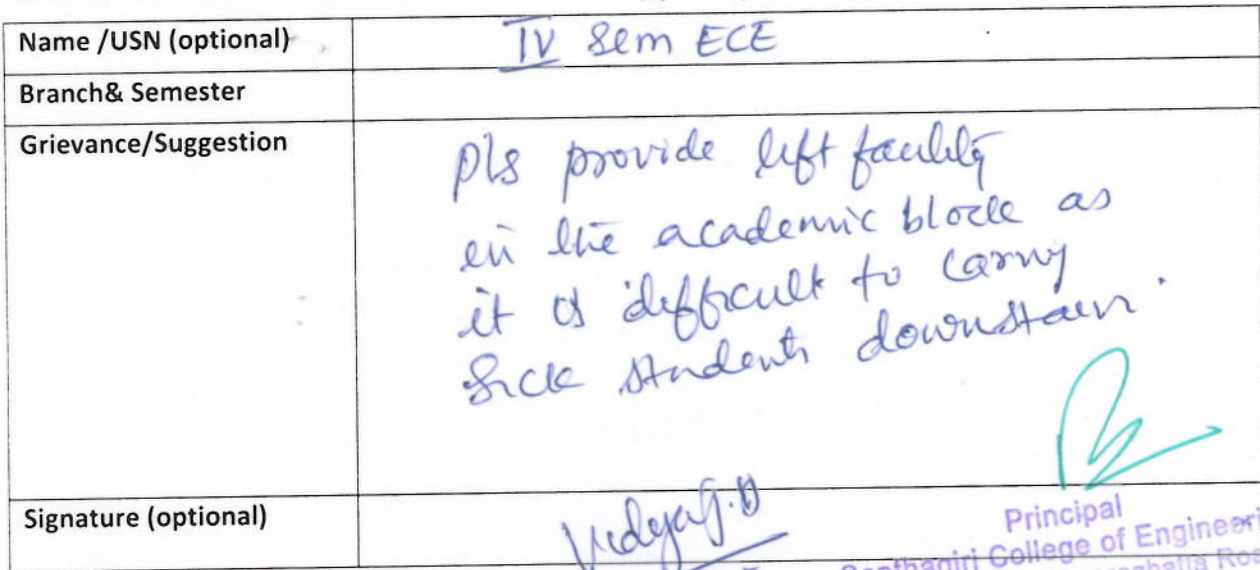 Name /USN (optional) IV Sem ECE
Branch& Semester
Grievance/Suggestion
pls provide lift facility
in the academic block as
it is difficult to carry
sick students downstairs.
Signature (optional) Vidya G.D
Principal
Sapthagiri College of Engineeri